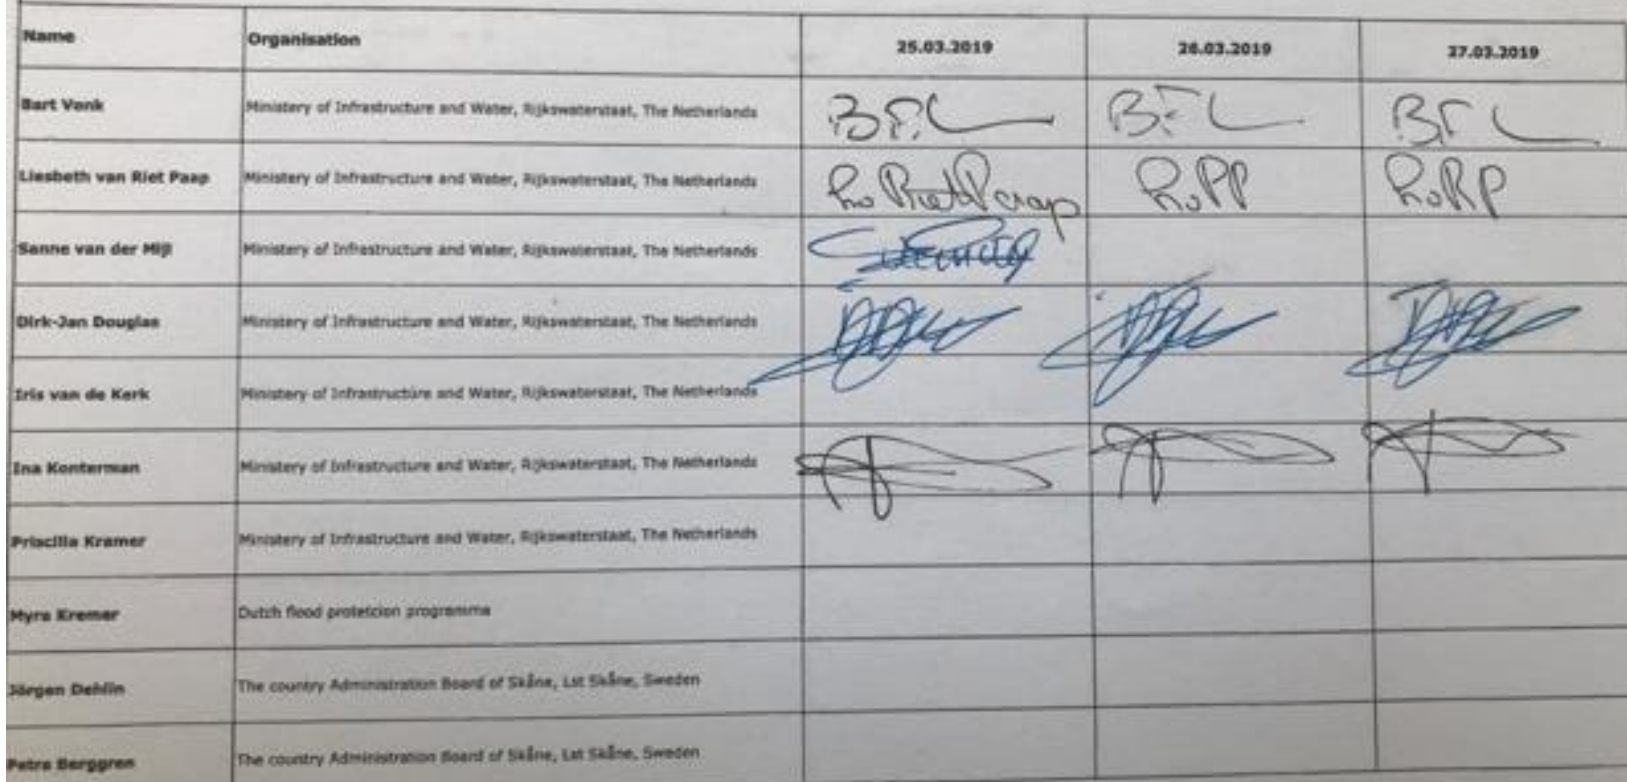 Name Organisation 25.03.2019 26.03.2019 27.03.2019
Bart Vonk Ministery of Infrastructure and Water, Rijkswaterstaat, The Netherlands
Liesbeth van Riet Paap Ministery of Infrastructure and Water, Rijkswaterstaat, The Netherlands
Sanne van der Mijl Ministery of Infrastructure and Water, Rijkswaterstaat, The Netherlands
Dirk-Jan Douglas Ministery of Infrastructure and Water, Rijkswaterstaat, The Netherlands
Iris van de Kerk Ministery of Infrastructure and Water, Rijkswaterstaat, The Netherlands
Ina Konterman Ministery of Infrastructure and Water, Rijkswaterstaat, The Netherlands
Priscilla Kramer Ministery of Infrastructure and Water, Rijkswaterstaat, The Netherlands
Myra Kremer Dutch flood protetcion programma
Jörgen Dehlin The country Administration Board of Skåne, Lst Skåne, Sweden
Petra Berggren The country Administration Board of Skåne, Lst Skåne, Sweden